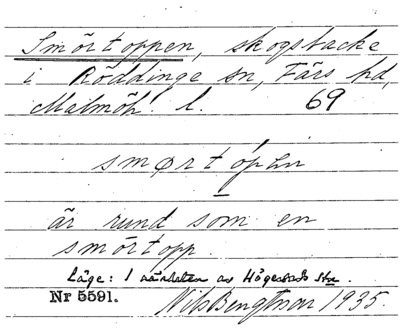 Smörtoppen, skogsbacke
i Röddinge sn, Färs hd,
Malmöh. l. 69
smørtópen
är rund som en
smörtopp.
Läge: I närheten av Högestads stn.
Nr 5591. Nils Bengtsson 1935.